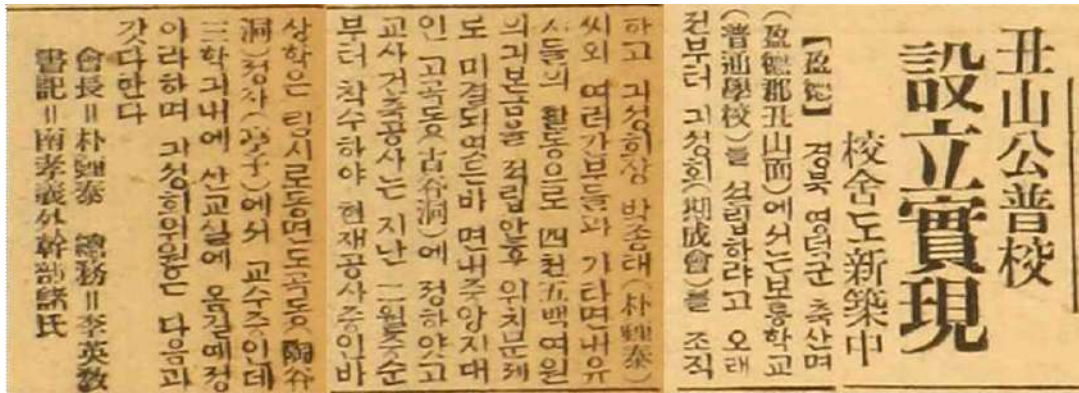 丑山公普校
設立實現
校舍도新築中
【盈德】 경북 영덕군 축산면
(盈德郡丑山面)에서는보통학교
(普通學校)를 설립하랴고 오래
전부터 긔성회(期成會)를 조직
하고 긔성회장 박종태(朴鍾泰)
씨외 여러간부들과 기타면내유
지들의 활동으로 四천五백여원
의긔본금을 적립한후 위치문데
로 미결되엿든바 면내중앙지대
인 고곡동(古谷洞)에 정하얏고
교사건축공사는 지난 二월중순
부터 착수하야 현재공사중인바
상학은 림시로동면도곡동(陶谷
洞)정자(亭子)에서 교수중인데
三학긔내에 신교실에 옴길예정
이라하며 긔성회위원은 다음과
갓다한다
會長＝朴鍾泰 總務＝李英敎
書記＝南孝義外幹部諸氏